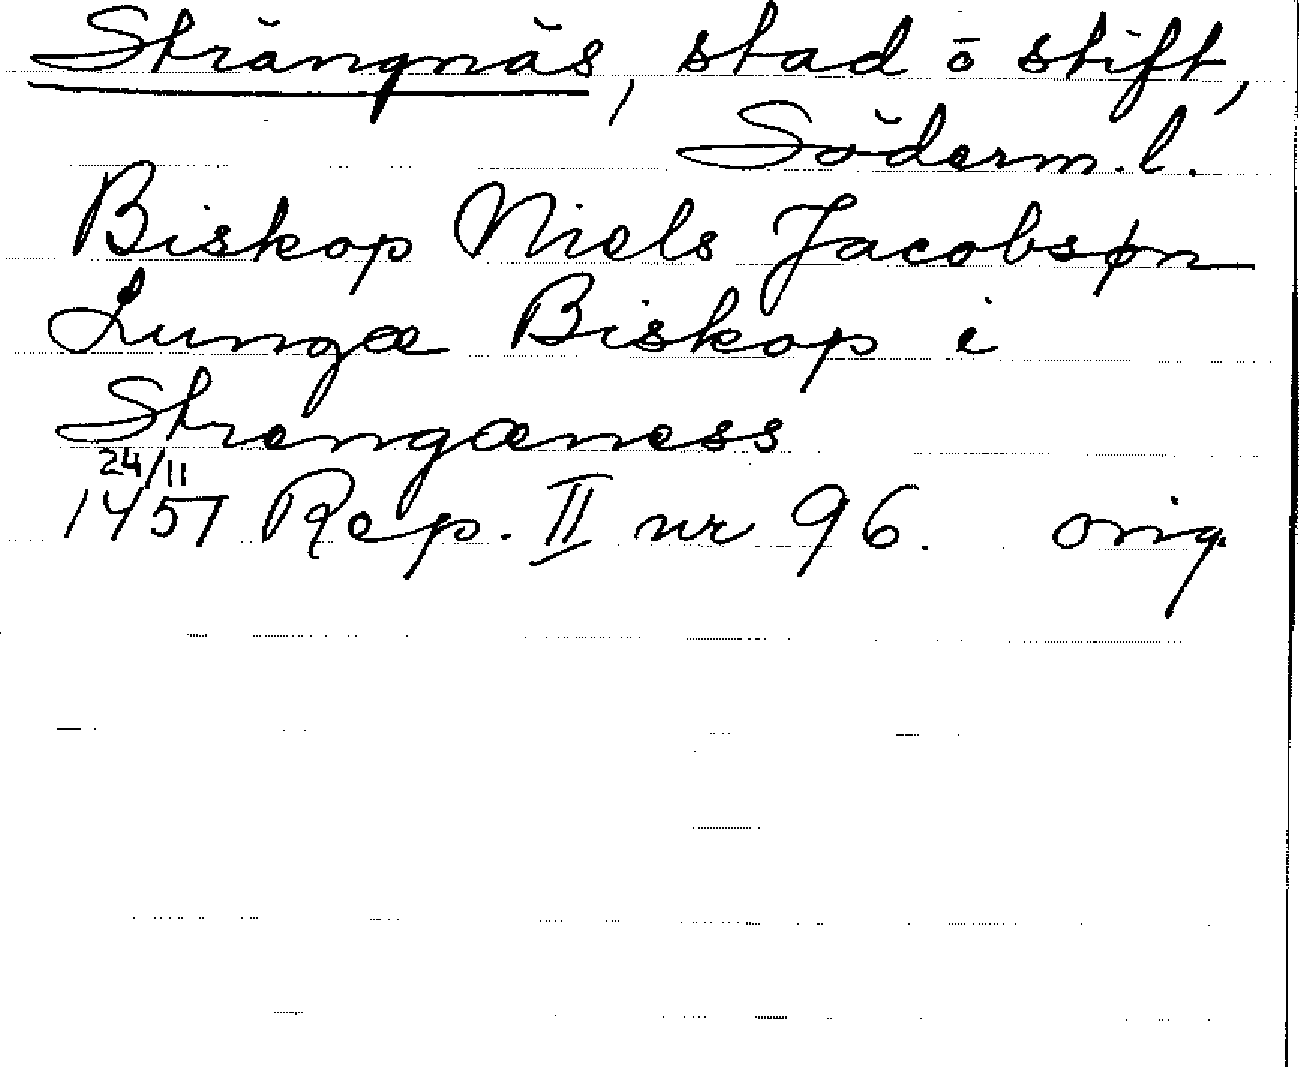 Strängnäs, stad o stift,
Söderm.l.
Biskop Niels Jacobsøn
Lungæ Biskop i
Strengæness
24/11
1457 Rep. II nr 96. orig.